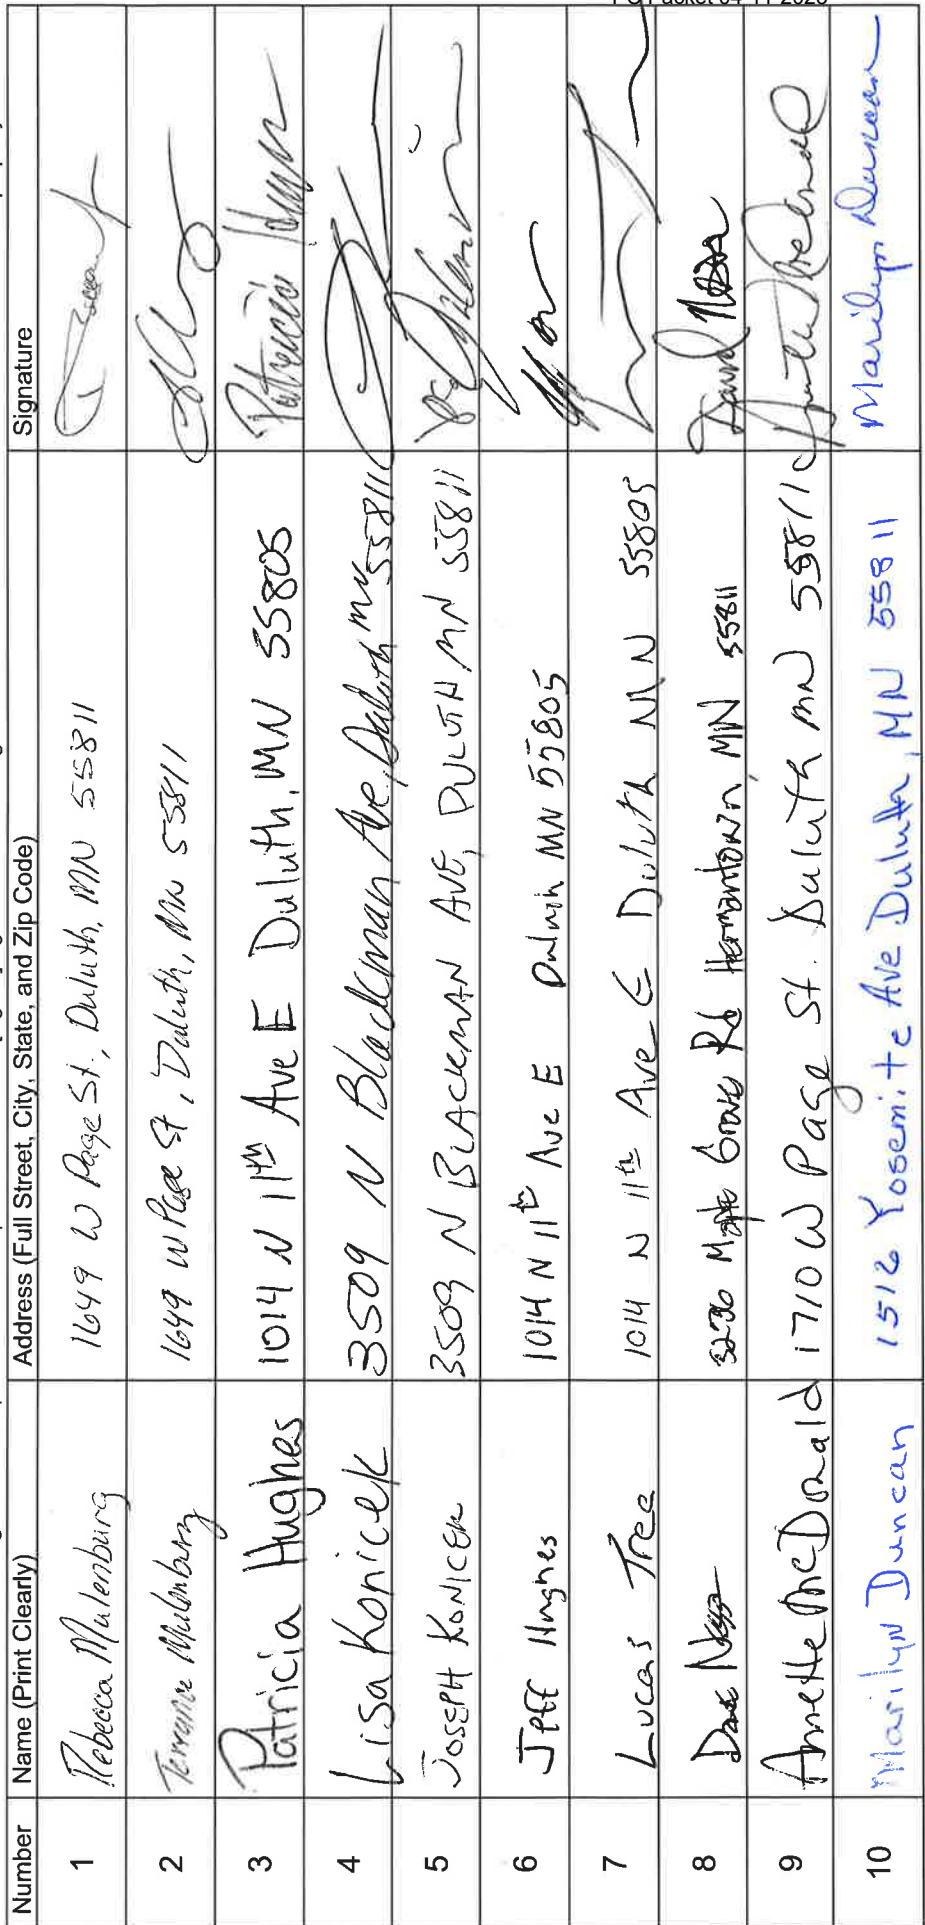 PC Packet 04-11-2023
Number Name (Print Clearly) Address (Full Street, City, State, and Zip Code) Signature
1 Rebecca Mulenburg 1649 W Page St. Duluth, MN 55811
2 Terrance Mulenburg 1649 W Page St, Duluth, MN 55811
3 Patricia Hughes 1014 N 11th Ave E Duluth, MN 55805 Patricia
4 Lisa Konicek 3509 N Blackman Ave, Duluth MN 55811
5 JOSEPH KONICEK 3509 N BLACKMAN AVE, DULUTH MN 55811
6 Jeff Hughes 1014 N 11th Ave E Duluth MN 55805
7 Lucas Tree 1014 N 11th Ave E Duluth MN 55805
8 Dave Grove Rd Hermantown, MN 55811 David
9 Annette McDonald 1710 W Page St. Duluth MN 55811
10 Marilyn Duncan 1512 Yosemite Ave Duluth, MN 55811 Marilyn Duncan